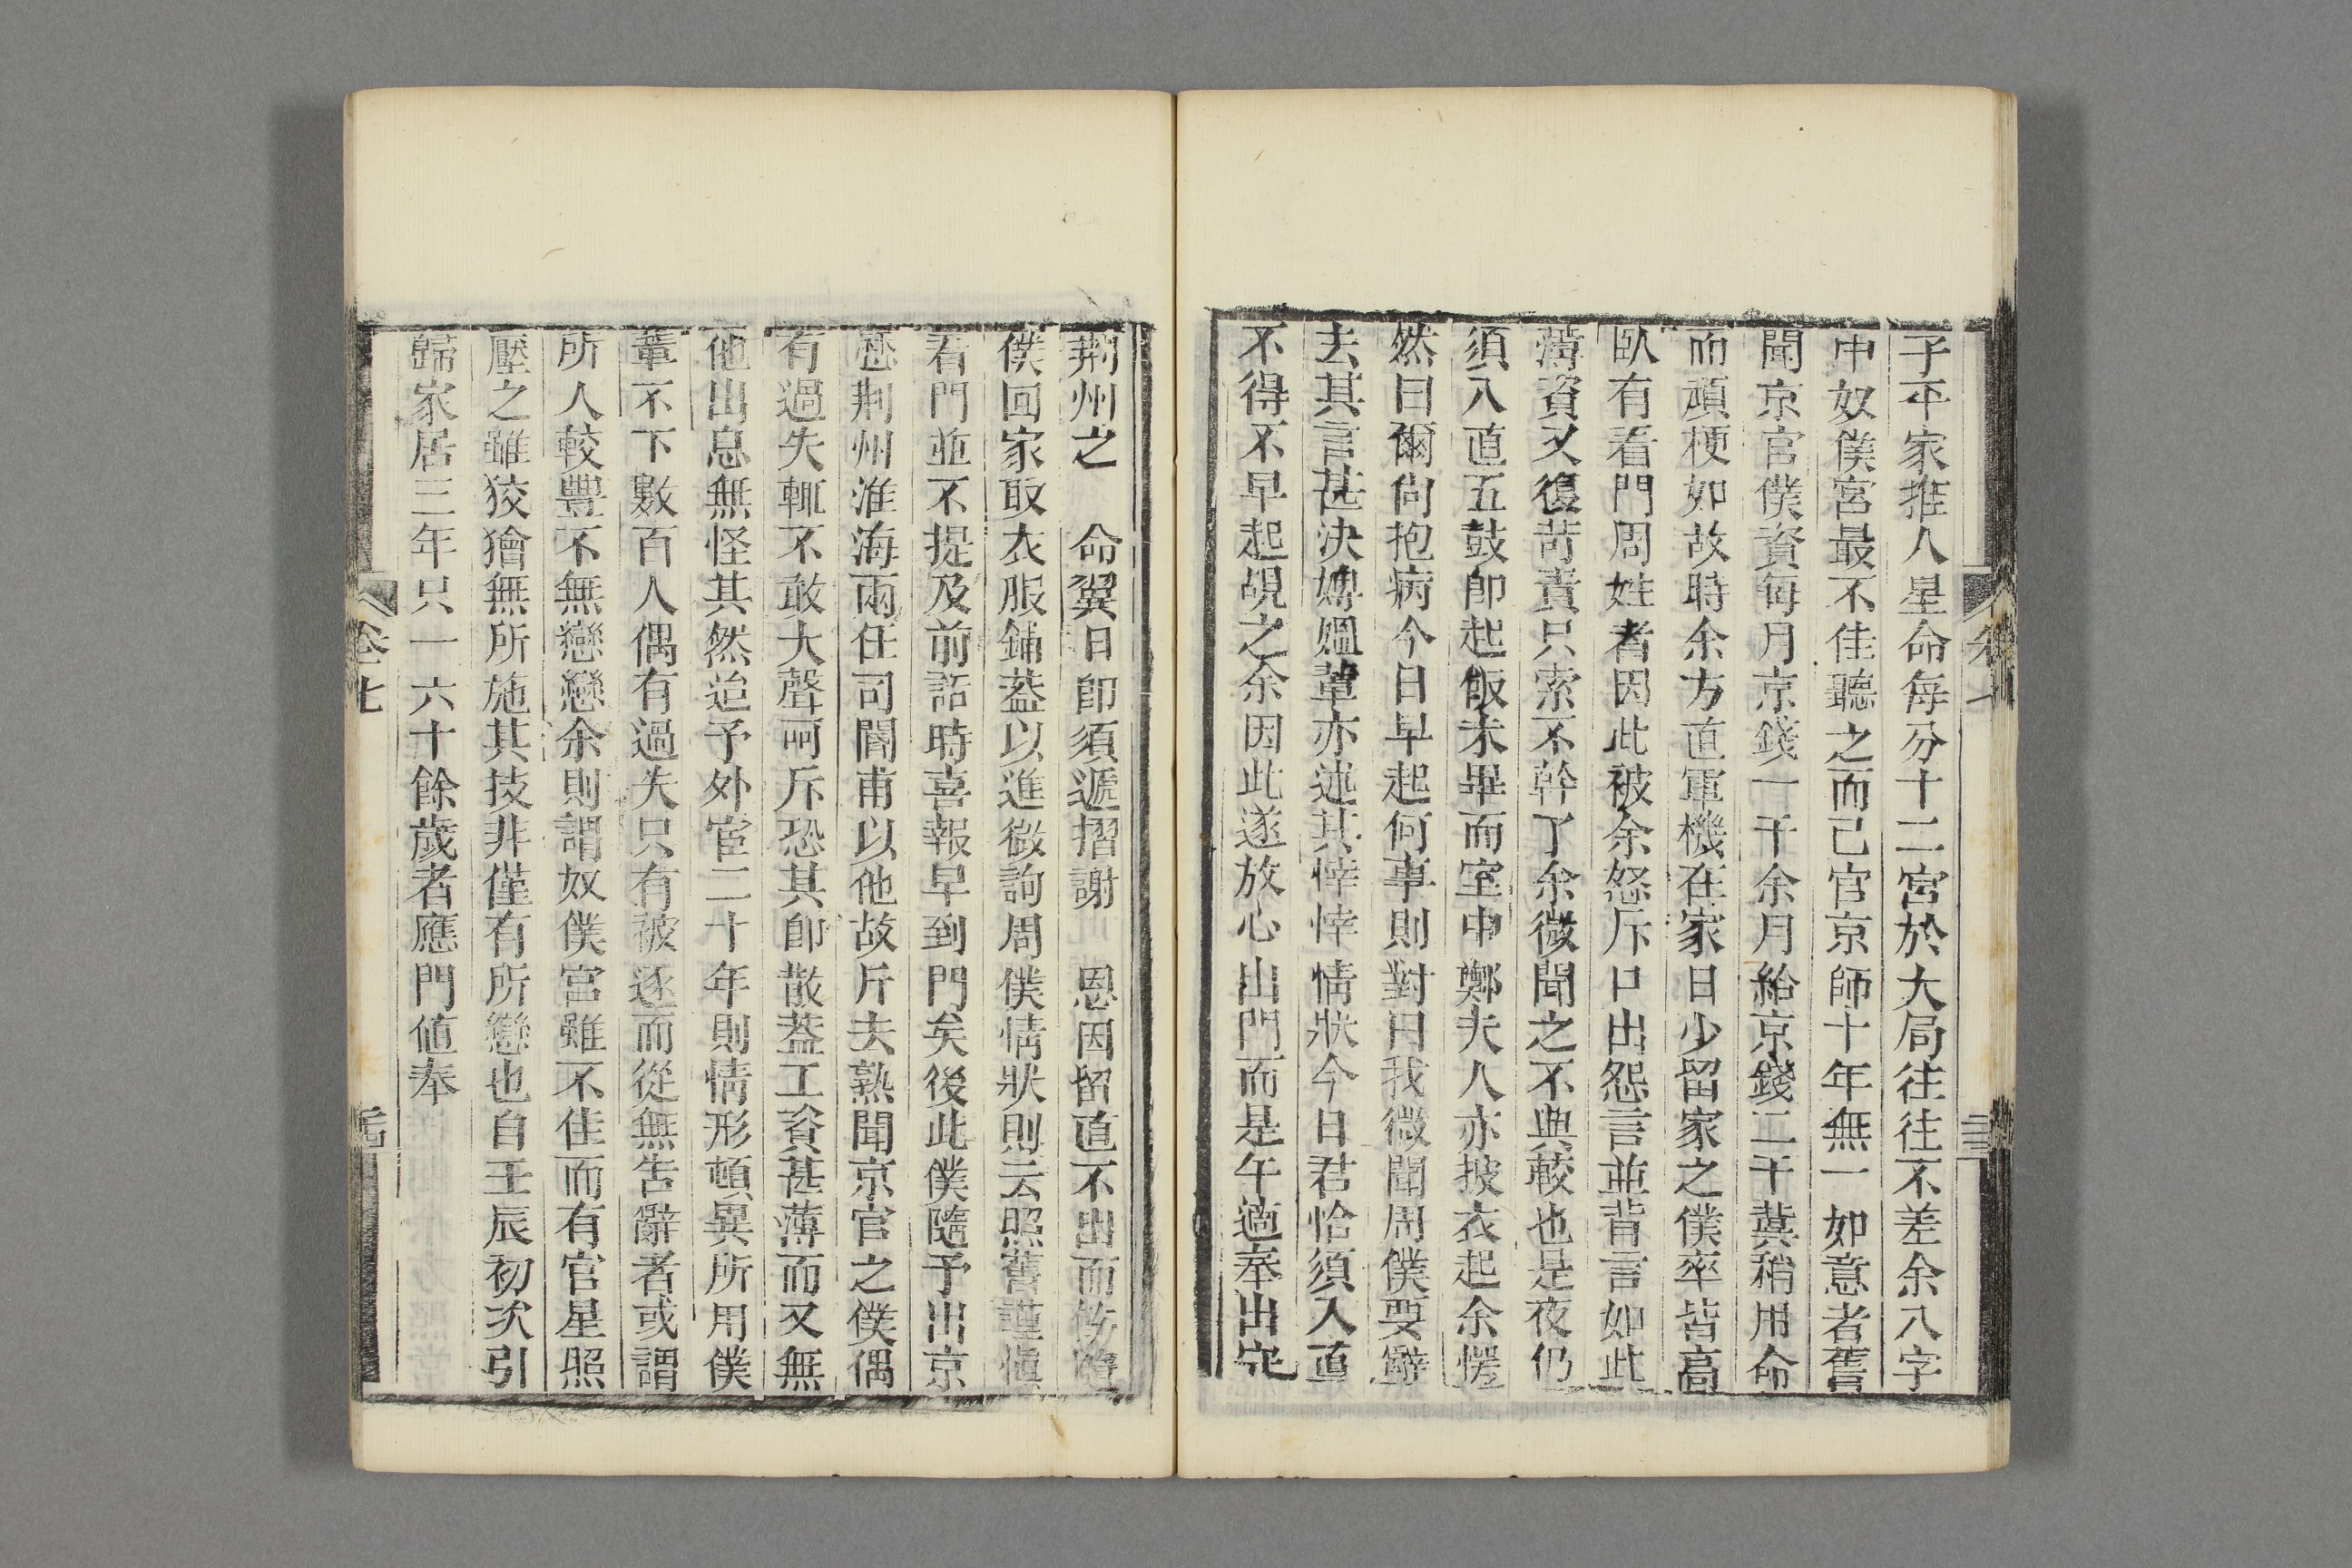 子平家推人星命每分十二宮於大局往往不差余八字
中奴僕宮最不佳聽之而己官京師十年無一如意者舊
聞京官僕資每月京錢一千余月給京錢二千冀稍用命
而頑梗如故時余方直軍機在家日少留家之僕率皆高
臥有看門周姓者因此被余怒斥口出怨言並背言如此
薄資又復苛責只索不幹了余微聞之不與較也是夜仍
須入直五鼓卽起飯未畢而室中鄭夫人亦披衣起余愕
然曰爾尙抱病今日早起何事則對曰我微聞周僕要辭
去其言甚決婢媼輩亦述其悻悻情狀今日君恰須入直
不得不早起覘之余因此遂放心出門而是午適奉出守
荆州之 命翼日卽須遞摺謝 恩因留直不出而飭隨
僕回家取衣服鋪葢以進微詢周僕情狀則云照舊謹愼
看門並不提及前話時喜報早到門矣後此僕隨予出京
歷荆州淮海兩任司閽甫以他故斥去熟聞京官之僕偶
有過失輒不敢大聲呵斥恐其卽散葢工資甚薄而又無
他出息無怪其然迨予外宦二十年則情形頓異所用僕
輩不下數百人偶有過失只有被逐而從無告辭者或謂
所人較豐不無戀戀余則謂奴僕宮雖不佳而有官星照
壓之雖狡獪無所施其技非僅有所戀也自壬辰初次引
歸家居三年只一六十餘歲者應門値奉
卷七